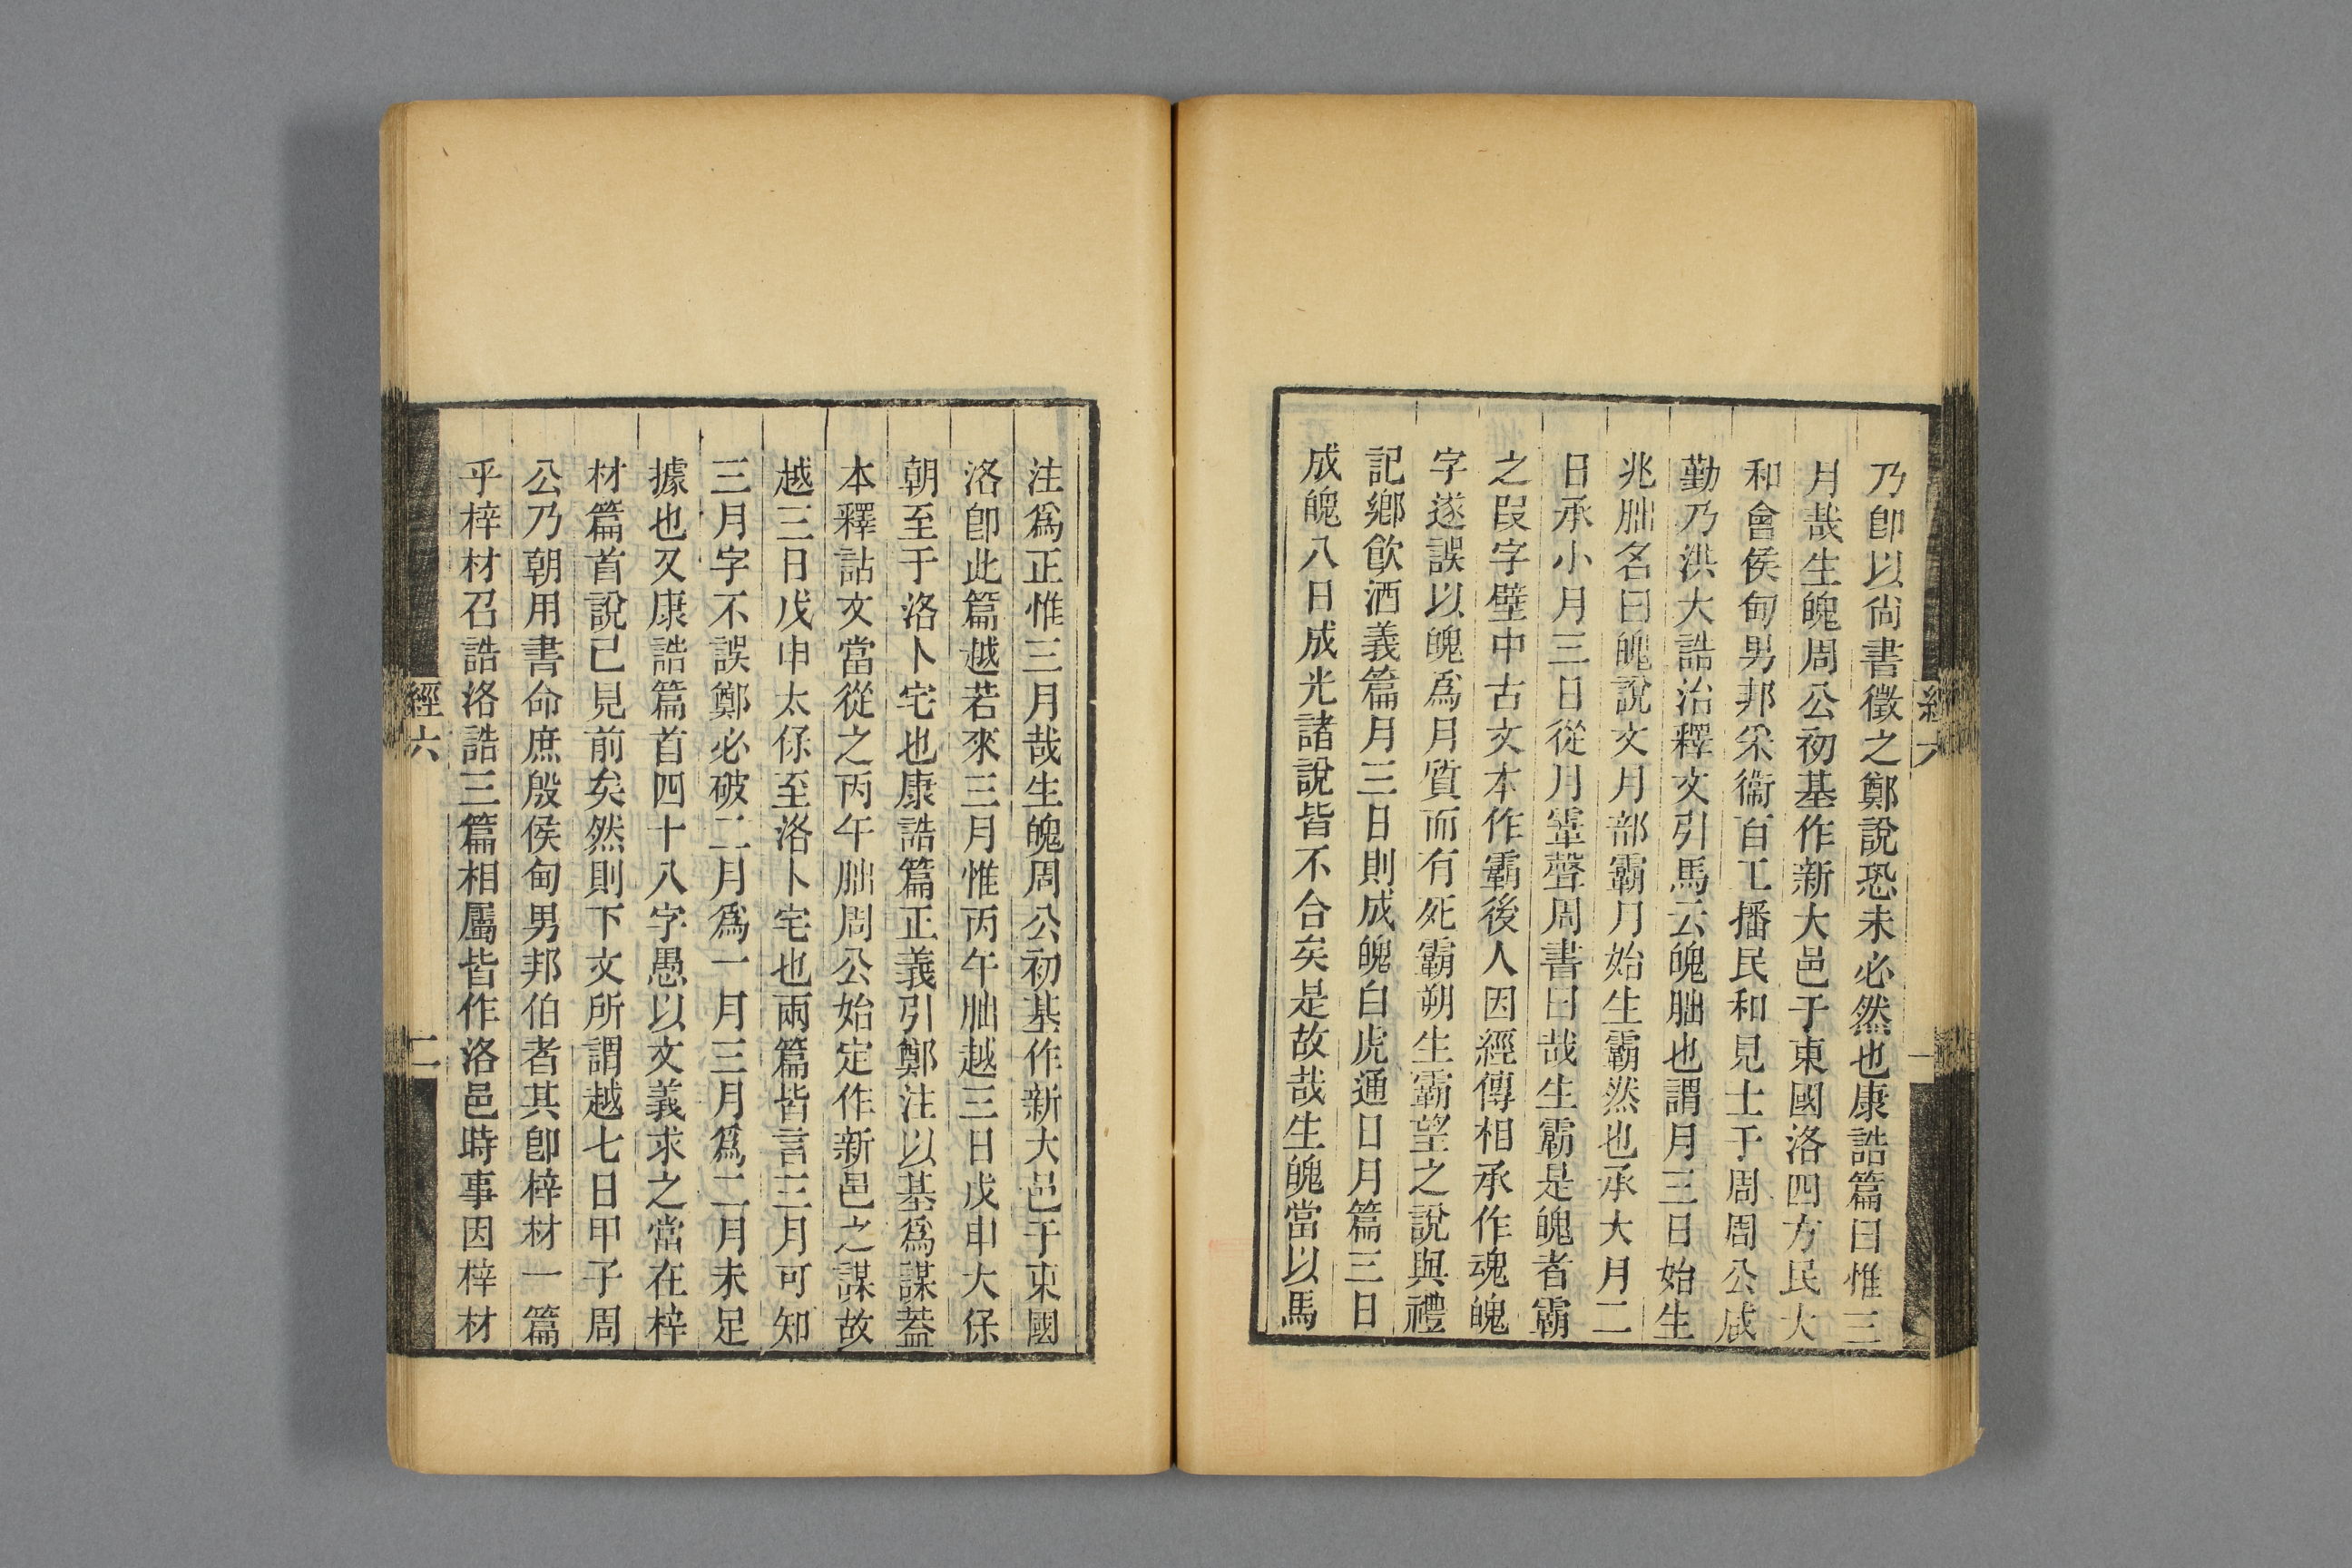 乃卽以尙書徵之鄭說恐未必然也康誥篇曰惟三
月哉生魄周公初基作新大邑于東國洛四方民大
和會侯甸男邦采衞百工播民和見士于周周公咸
勤乃洪大誥治釋文引馬云魄朏也謂月三日始生
兆朏名曰魄說文月部霸月始生霸然也承大月二
日承小月三日從月䨣聲周書曰哉生霸是魄者霸
之叚字壁中古文本作霸後人因經傳相承作魂魄
字遂誤以魄爲月質而有死霸朔生霸望之說與禮
記鄕飮酒義篇月三日則成魄白虎通日月篇三日
成魄八日成光諸說皆不合矣是故哉生魄當以馬
經六
一
注爲正惟三月哉生魄周公初基作新大邑于東國
洛卽此篇越若來三月惟丙午朏越三日戊申大保
朝至于洛卜宅也康誥篇正義引鄭注以基爲謀葢
本釋詁文當從之丙午朏周公始定作新邑之謀故
越三日戊申太保至洛卜宅也兩篇皆言三月可知
三月字不誤鄭必破二月爲一月三月爲二月未足
據也又康誥篇首四十八字愚以文義求之當在梓
材篇首說已見前矣然則下文所謂越七日甲子周
公乃朝用書命庶殷侯甸男邦伯者其卽梓材一篇
乎梓材召誥洛誥三篇相屬皆作洛邑時事因梓材
經六
二